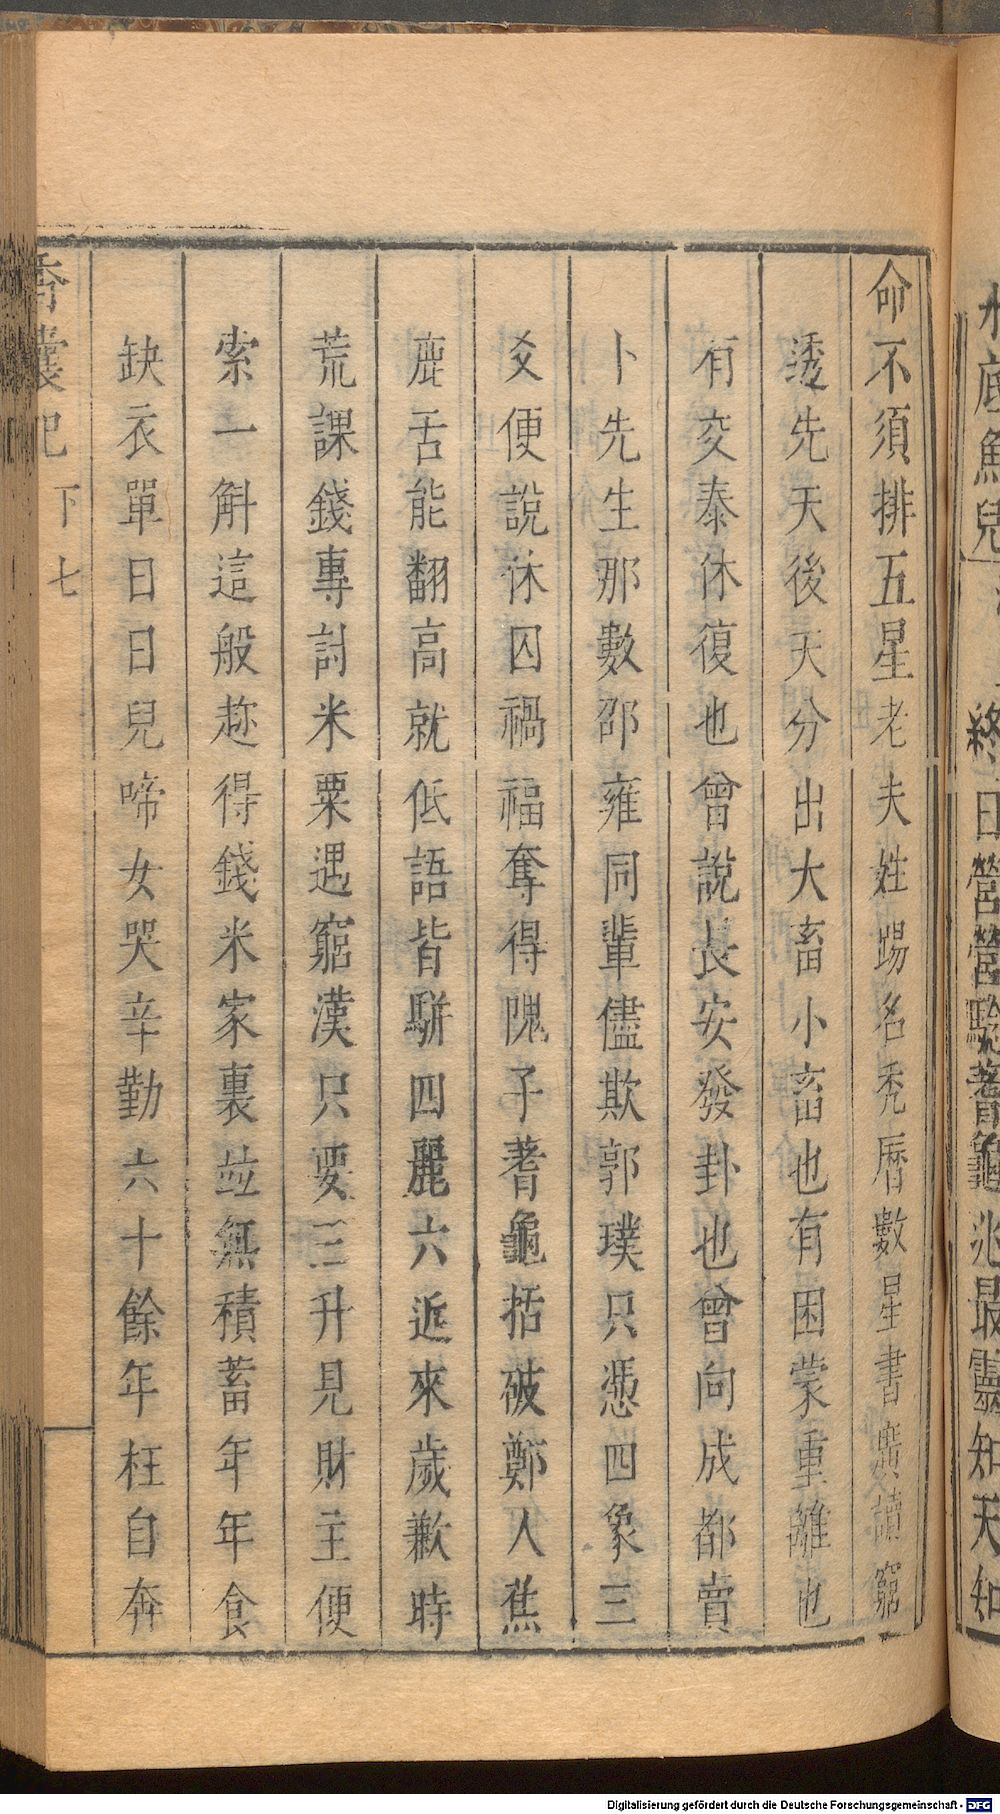 水底魚兒
終日營營驗蓍龜兆最靈知天知
命不須排五星老夫姓踢名禿曆數星書廣讀窮
透先天後天分出大畜小畜也有困蒙重離也
有交泰休復也曾說長安發卦也曾向成都賣
卜先生那數邵雍同輩儘欺郭璞只憑四象三
爻便說休囚禍福奪得隗子蓍龜括破鄭人蕉
鹿舌能翻高就低語皆騈四麗六近來歲歉時
荒課錢專討米粟遇窮漢只要三升見財主便
索一斛這般趂得錢米家裏並無積蓄年年食
缺衣單日日兒啼女哭辛勤六十餘年枉自奔
香囊記 下 七
Digitalisierung gefördert durch die Deutsche Forschungsgemeinschaft - DFG